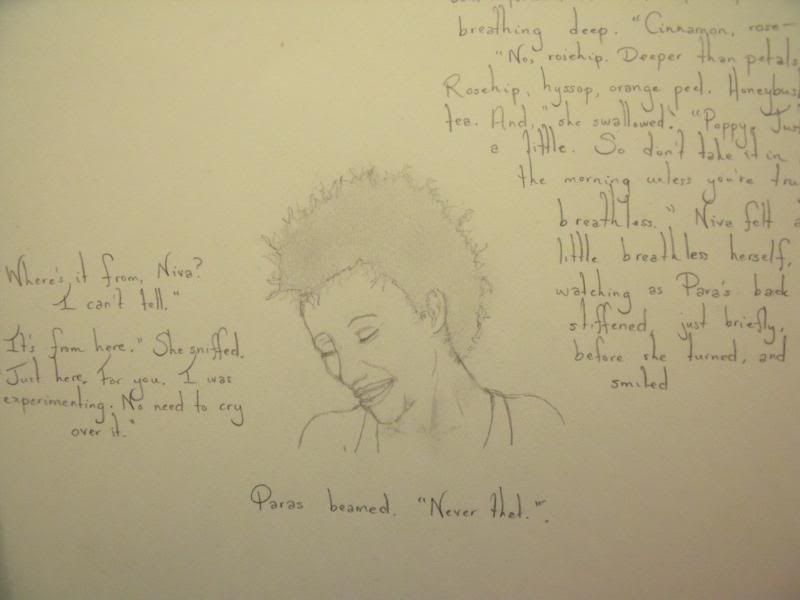 breathing deep. "Cinnamon, rose—
"No, rosehip. Deeper than petals,
Rosehip, hyssop, orange peel. Honeybush
tea. And," she swallowed. "Poppy. Just
a little. So don't take it in
the morning unless you're tru
breathless." Niva felt a
little breathless herself,
watching as Para's back
stiffened, just briefly,
before she turned, and
smiled
Where's it from, Niva?
I can't tell."
It's from here." She sniffed.
"Just here. For you. I was
experimenting. No need to cry
over it."
Paras beamed. "Never that.".